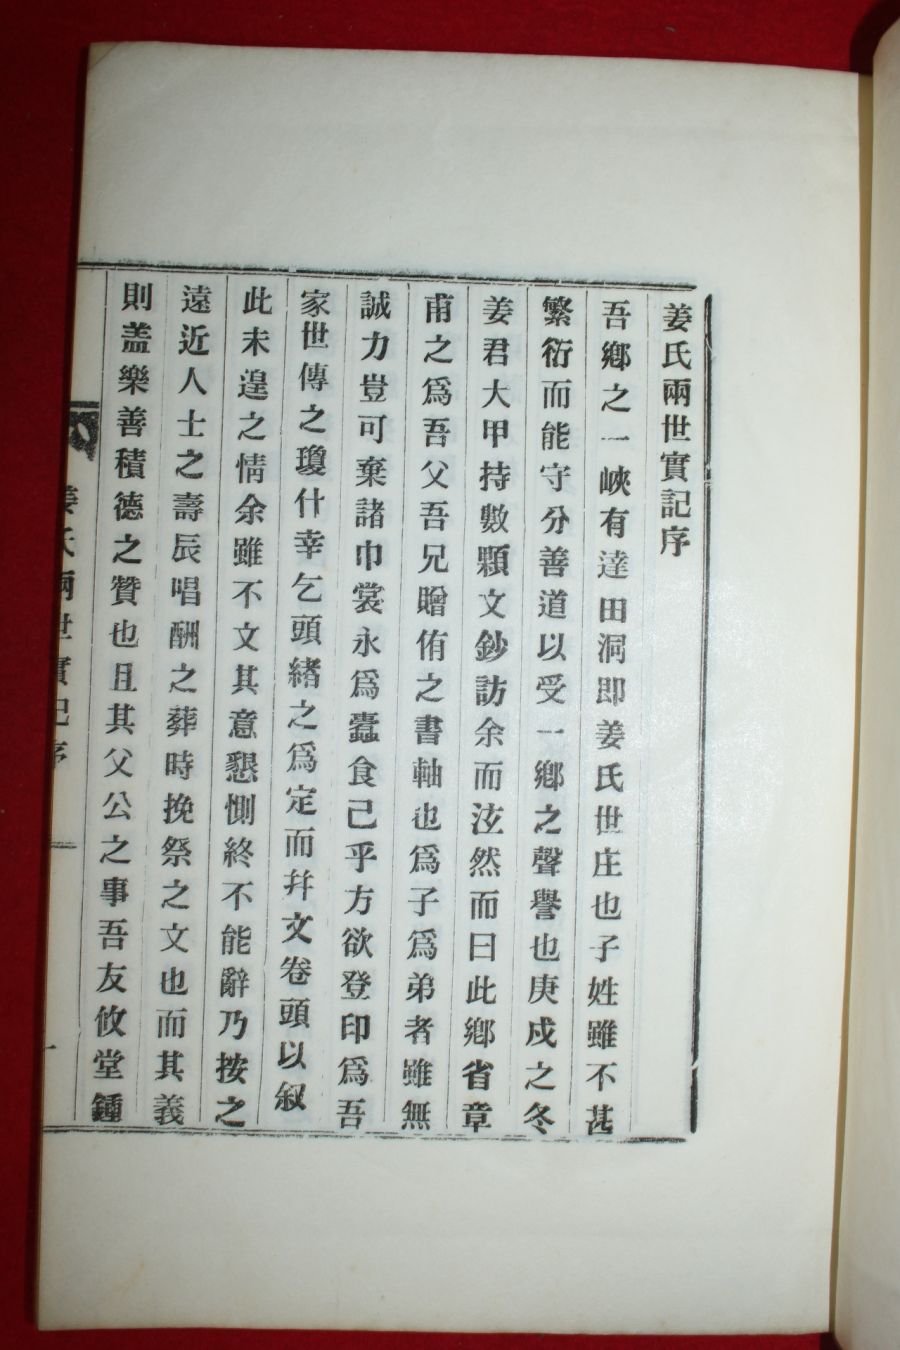 姜氏兩世實記序
吾鄕之一峽有達田洞即姜氏世庄也子姓雖不甚
繁衍而能守分善道以受一鄕之聲譽也庚戍之冬
姜君大甲持數顆文鈔訪余而泫然而曰此鄕省章
甫之爲吾父吾兄贈侑之書軸也爲子爲弟者雖無
誠力豈可棄諸巾裳永爲蠹食己乎方欲登印爲吾
家世傳之瓊什幸乞頭緖之爲定而幷文卷頭以叙
此未遑之情余雖不文其意懇惻終不能辭乃按之
遠近人士之壽辰唱酬之葬時挽祭之文也而其義
則盖樂善積德之贊也且其父公之事吾友攸堂鍾
姜氏兩世實記序
一